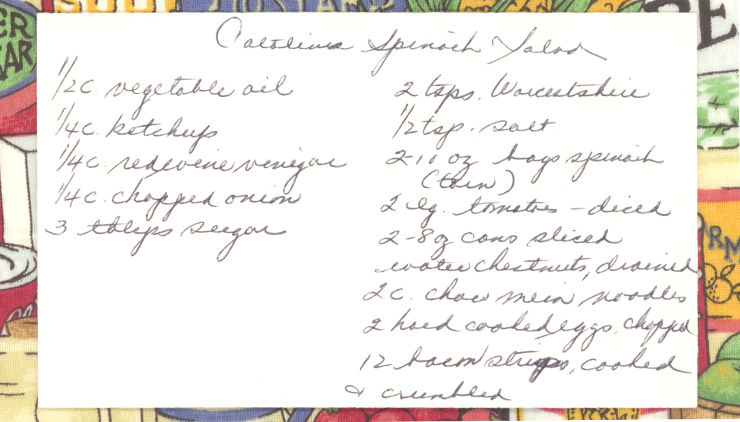 Carolina Spinach Salad
1/2 c vegetable oil
1/4 c. ketchup
1/4 c. redwine vinegar
1/4 c. chopped onion
3 tblsps sugar
2 tsps. Worcestshire
1/2 tsp. salt
2-10 oz bags spinach
(torn)
2 lg. tomatoes - diced
2-8 oz cans sliced
water chestnuts, drained
2 c. chow mein noodles
2 hard cooked eggs, chopped
12 bacon strips, cooked
& crumbled